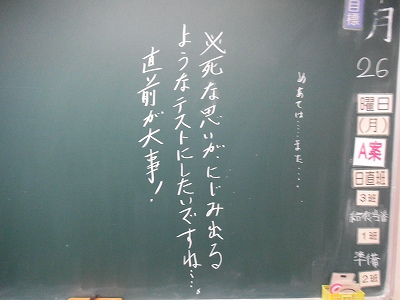 目標
月
26
曜日
(月)
A案
日直班
3班
給食当番
1班
準備
2班
めあては……また……
必死な思いが、にじみ出る
ようなテストにしたいですね…。
直前が大事!